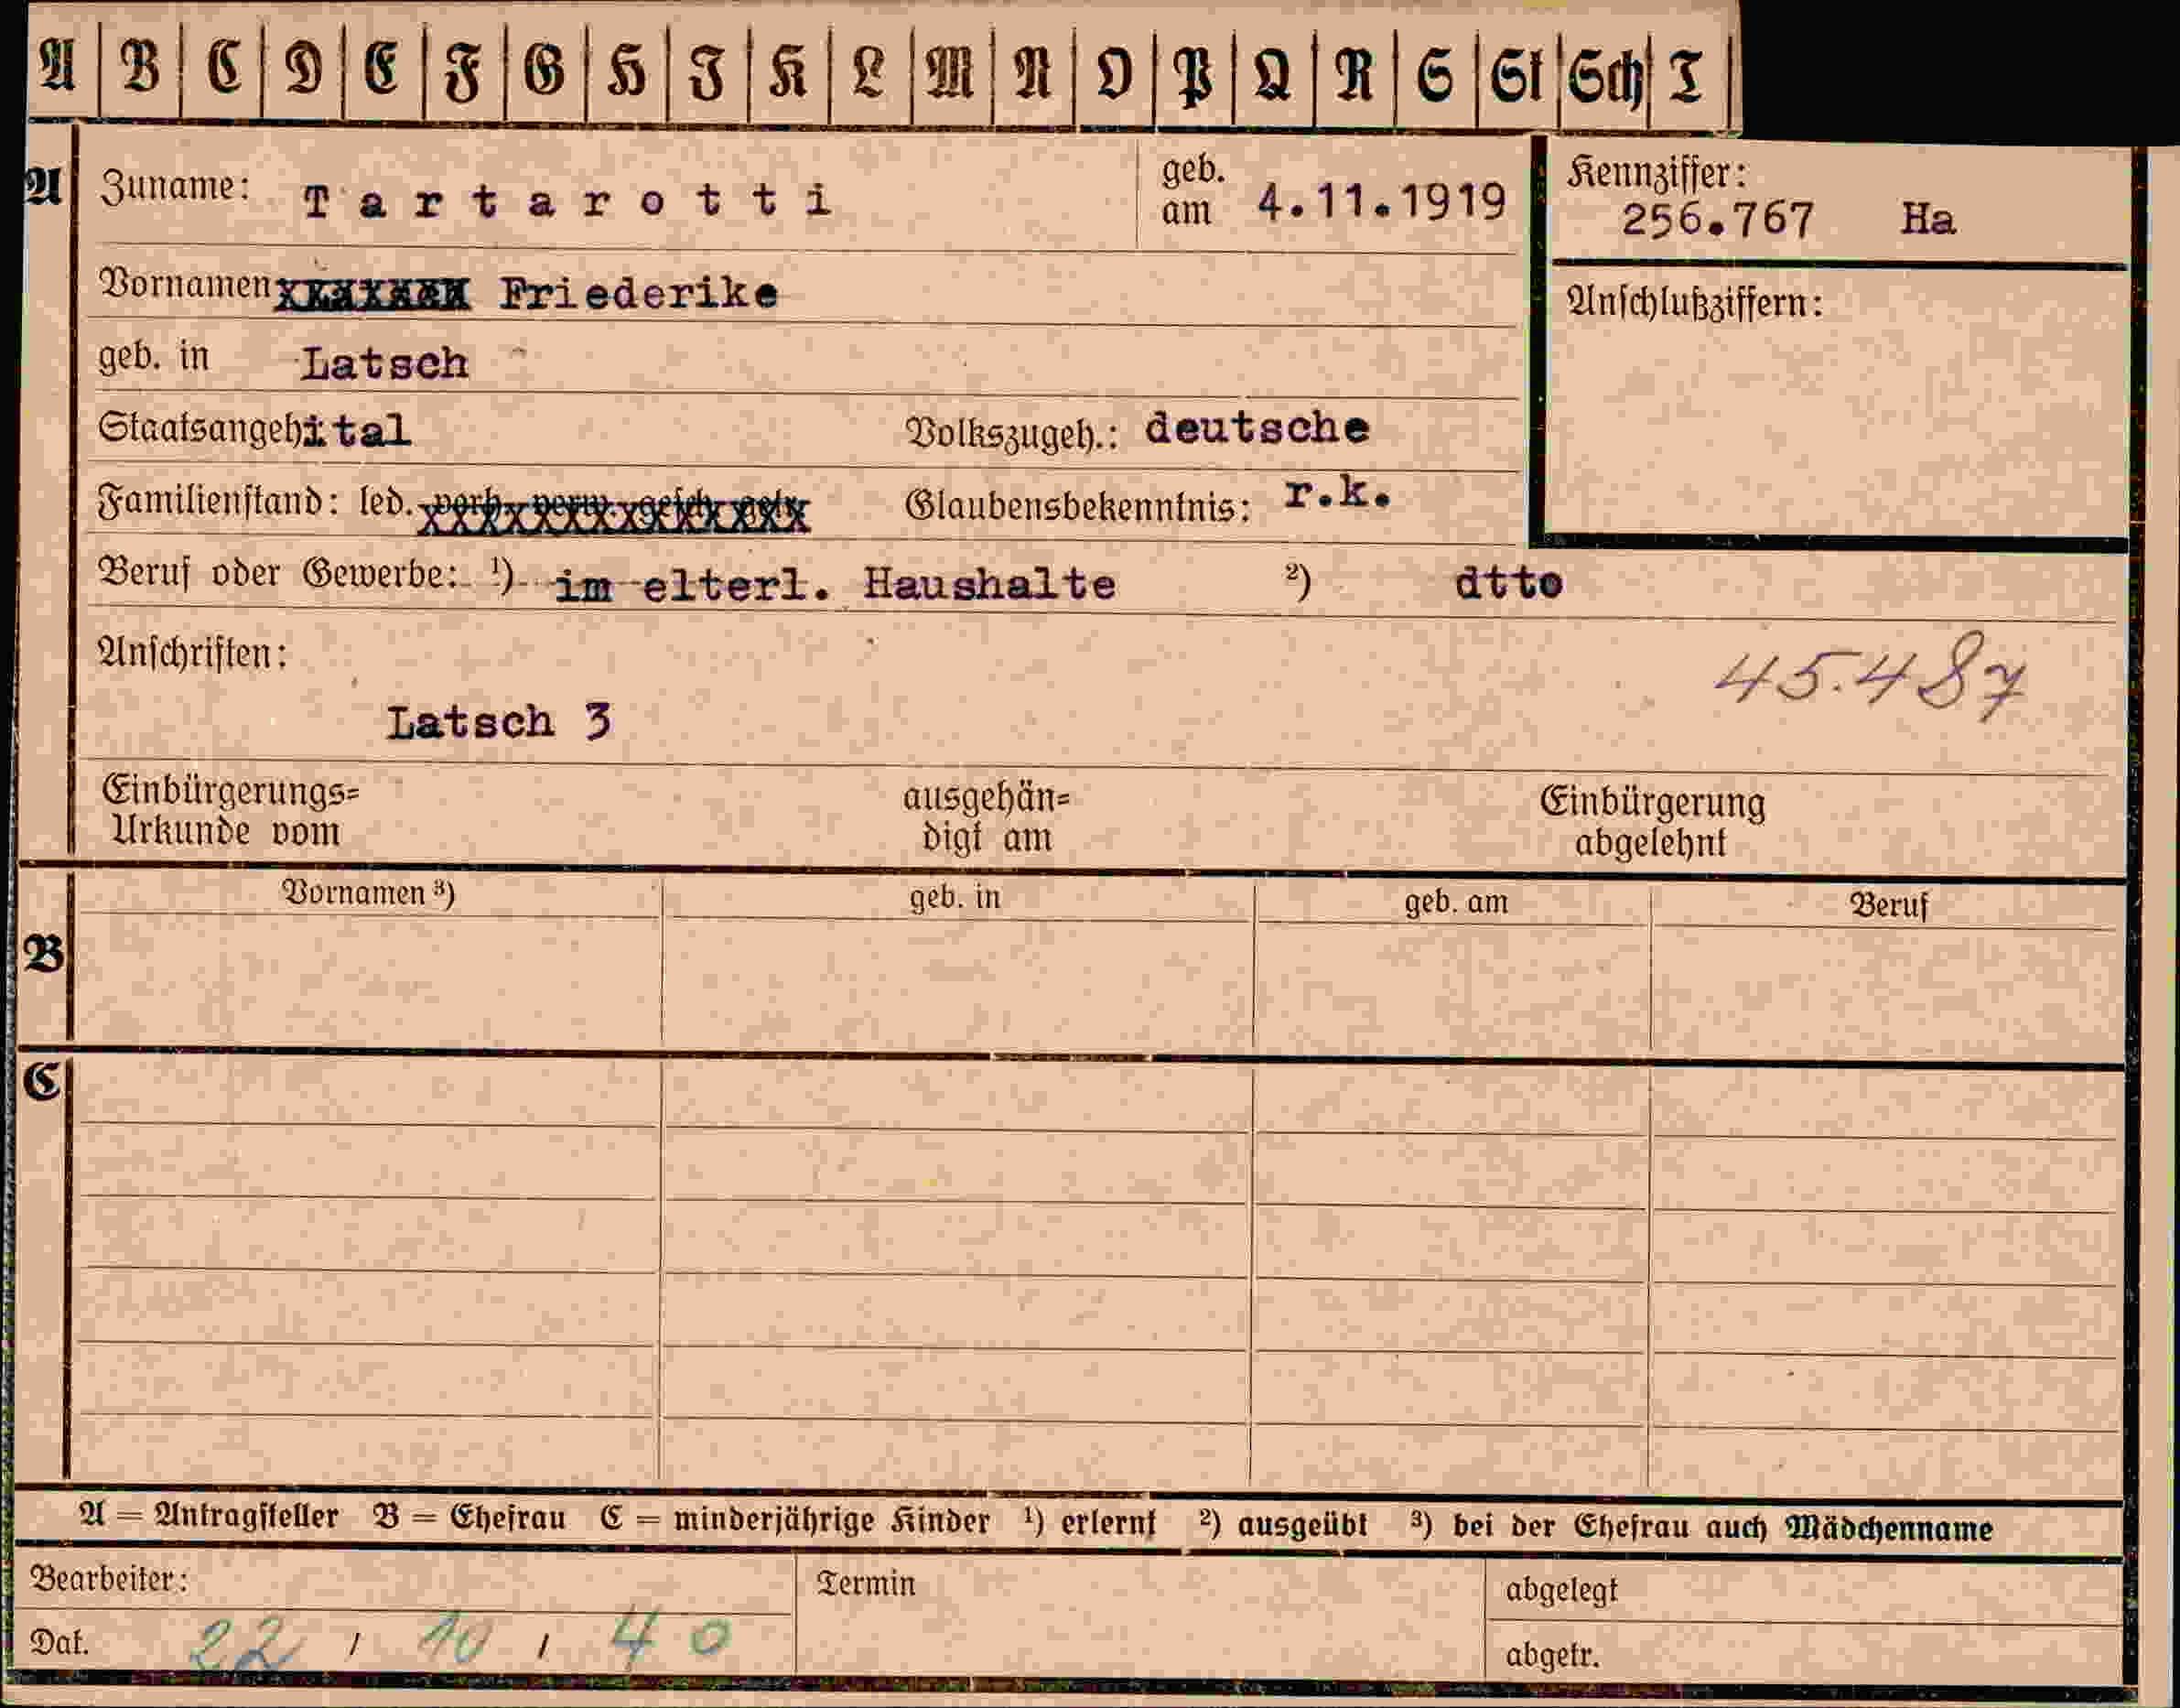 A B C D E F G H J K L M N O P Q R S St Sch T
A Zuname: Tartarotti geb. am 4.11.1919 Kennziffer: 256.767 Ha
Vornamen Friederike Anschlußziffern:
geb. in Latsch
Staatsangeh ital Volkszugeh.: deutsche
Familienstand: led. verh. verw. gesch. getr. Glaubensbekenntnis: r.k.
Beruf oder Gewerbe: ¹) im elterl. Haushalte ²) dtto
Anschriften: 45.487
Latsch 3
Einbürgerungs= ausgehän= Einbürgerung
Urkunde vom digt am abgelehnt
Vornamen ³) geb. in geb. am Beruf
B
C
A = Antragsteller B = Ehefrau C = minderjährige Kinder ¹) erlernt ²) ausgeübt ³) bei der Ehefrau auch Mädchenname
Bearbeiter: Termin abgelegt
Dat. 22 / 10 / 40 abgetr.